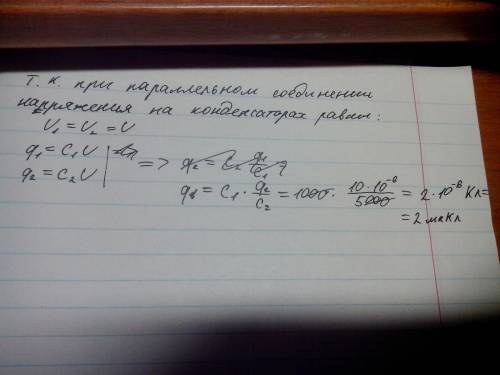 Т. к. при параллельном соединении
напряжения на конденсаторах равны:
U₁ = U₂ = U
q₁ = C₁U
q₂ = C₂U
=> q₂ = C₂ q₁/C₁
q₁ = C₁ · q₂/C₂ = 1000 · 10·10⁻⁶/5000 = 2·10⁻⁶ Кл =
= 2 мкКл